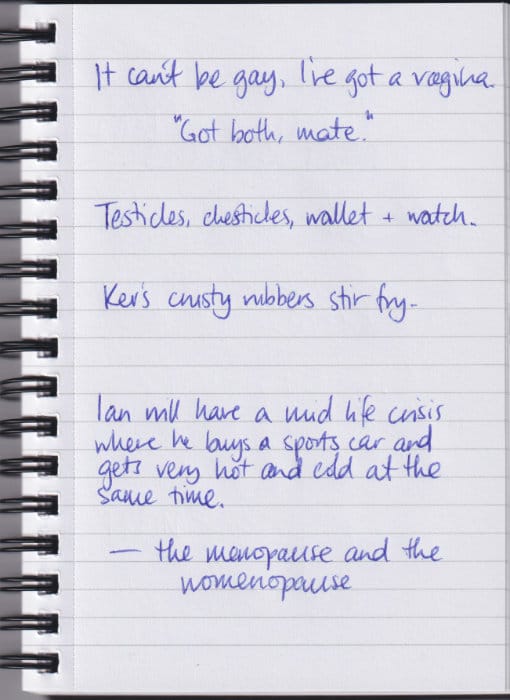 It can't be gay, I've got a vagina.
"Got both, mate."
Testicles, chesticles, wallet + watch.
Kev's crusty rubbers stir fry.
Ian will have a mid life crisis
where he buys a sports car and
gets very hot and cold at the
same time.
— the menopause and the
womenopause